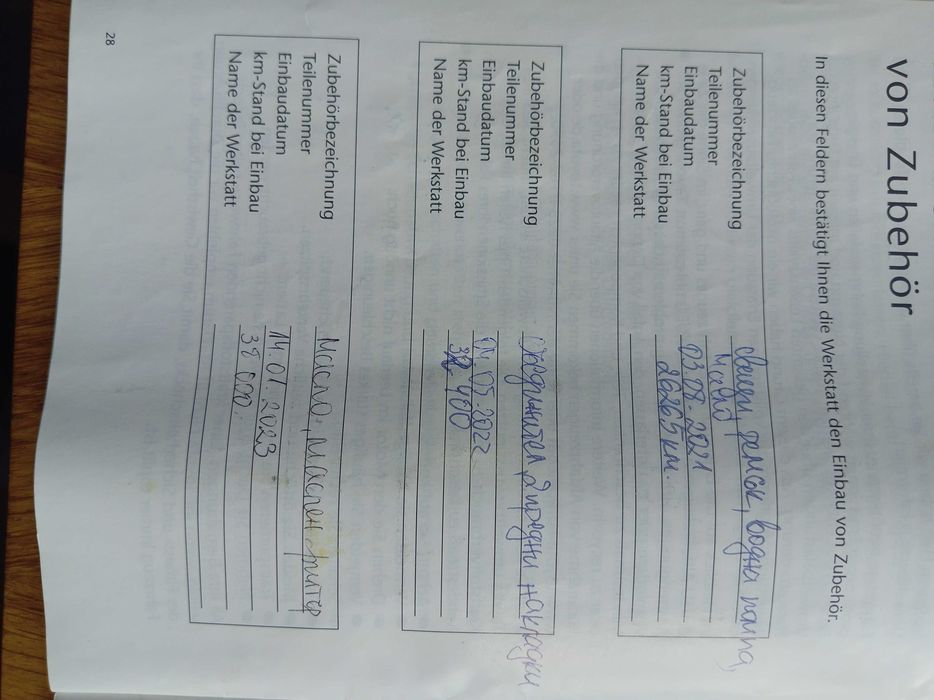 von Zubehör
In diesen Feldern bestätigt Ihnen die Werkstatt den Einbau von Zubehör.
Zubehörbezeichnung свещи, ремък, водна помпа,
Teilenummer
Einbaudatum 03.08.2021
km-Stand bei Einbau 26265 км.
Name der Werkstatt
Zubehörbezeichnung предни накладки
Teilenummer
Einbaudatum 04.05.2022
km-Stand bei Einbau 32 400
Name der Werkstatt
Zubehörbezeichnung Масло, маслен филтер
Teilenummer
Einbaudatum 14.01.2023
km-Stand bei Einbau 38 000.
Name der Werkstatt
28